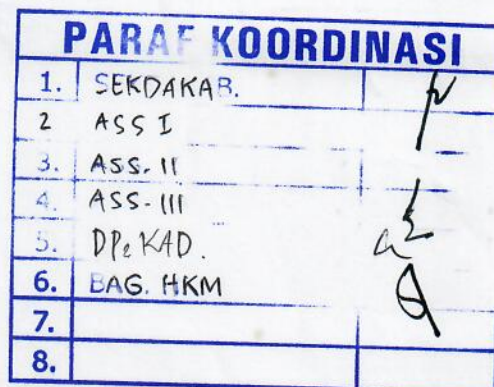 PARAF KOORDINASI
1. SEKDAKAB.
2 ASS I
3. ASS. II
4. ASS-III
5. DPeKAD.
6. BAG. HKM
7.
8.